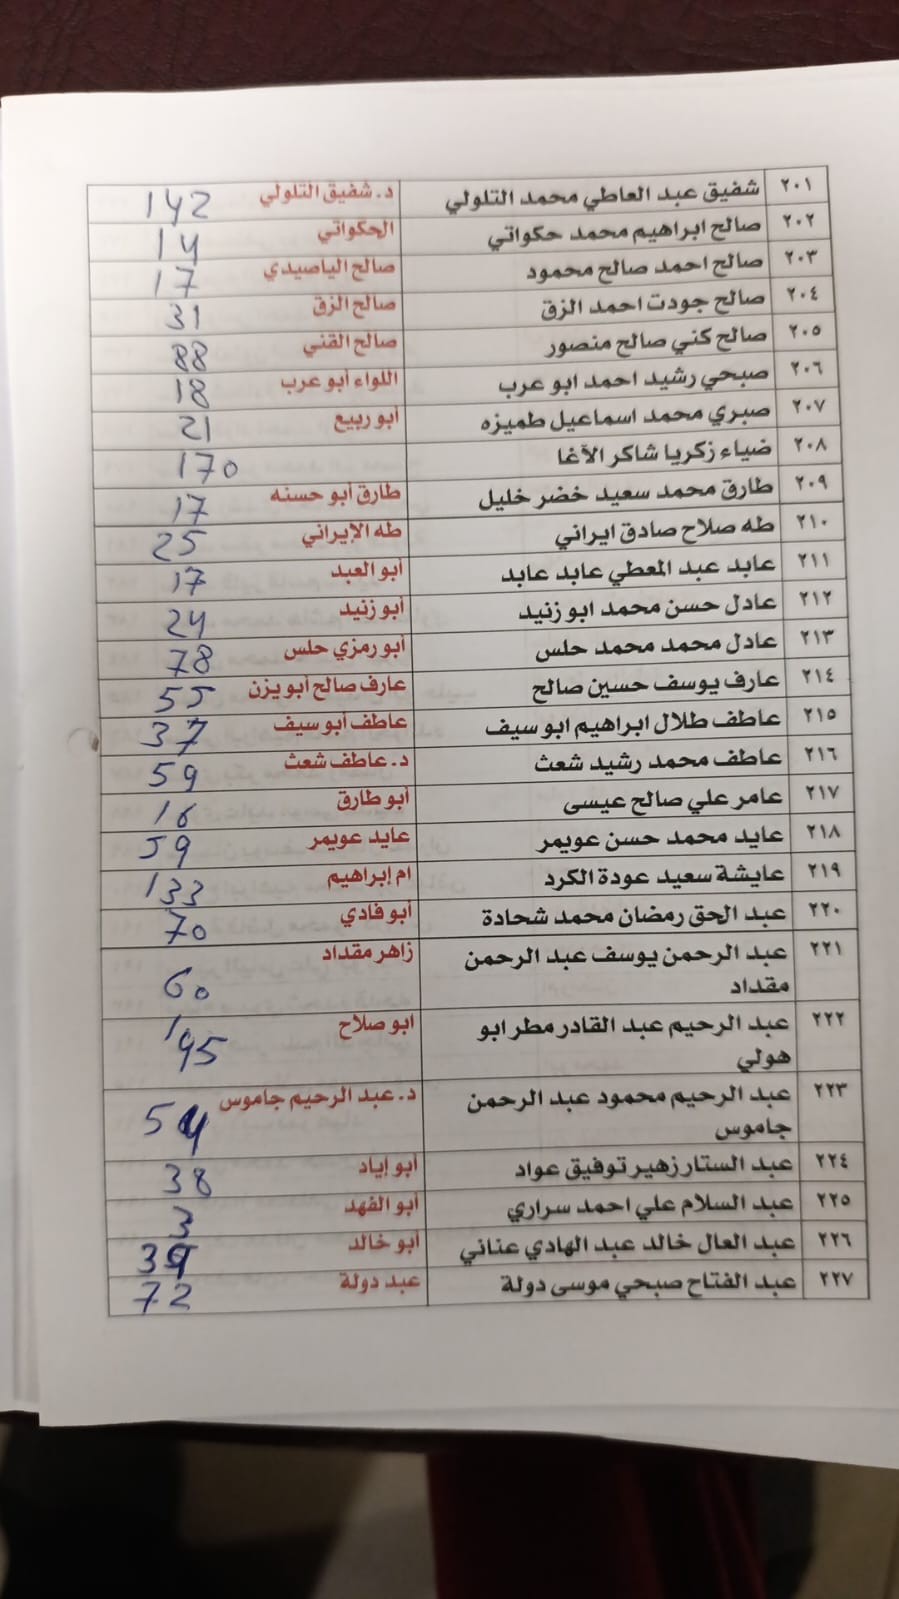 ٢٠١ شفيق عبد العاطي محمد التلولي د. شفيق التلولي 142
٢٠٢ صالح ابراهيم محمد حكواتي الحكواتي 14
٢٠٣ صالح احمد صالح محمود صالح الياصيدي 17
٢٠٤ صالح جودت احمد الزق صالح الزق 31
٢٠٥ صالح كني صالح منصور صالح القني 88
٢٠٦ صبحي رشيد احمد ابو عرب اللواء أبو عرب 18
٢٠٧ صبري محمد اسماعيل طميزه أبو ربيع 21
٢٠٨ ضياء زكريا شاكر الآغا 170
٢٠٩ طارق محمد سعيد خضر خليل طارق أبو حسنه 17
٢١٠ طه صلاح صادق ايراني طه الإيراني 25
٢١١ عابد عبد المعطي عابد عابد أبو العبد 17
٢١٢ عادل حسن محمد ابو زنيد أبو زنيد 24
٢١٣ عادل محمد محمد حلس أبو رمزي حلس 78
٢١٤ عارف يوسف حسين صالح عارف صالح أبو يزن 55
٢١٥ عاطف طلال ابراهيم ابو سيف عاطف أبو سيف 37
٢١٦ عاطف محمد رشيد شعث د. عاطف شعث 59
٢١٧ عامر علي صالح عيسى أبو طارق 16
٢١٨ عايد محمد حسن عويمر عايد عويمر 59
٢١٩ عايشة سعيد عودة الكرد ام إبراهيم 133
٢٢٠ عبد الحق رمضان محمد شحادة أبو فادي 70
٢٢١ عبد الرحمن يوسف عبد الرحمن زاهر مقداد
مقداد 60
٢٢٢ عبد الرحيم عبد القادر مطر ابو ابو صلاح
هولي 195
٢٢٣ عبد الرحيم محمود عبد الرحمن د. عبد الرحيم جاموس
جاموس 54
٢٢٤ عبد الستار زهير توفيق عواد أبو إياد 38
٢٢٥ عبد السلام علي احمد سراري أبو الفهد 3
٢٢٦ عبد العال خالد عبد الهادي عناني أبو خالد
٢٢٧ عبد الفتاح صبحي موسى دولة عبد دولة 72